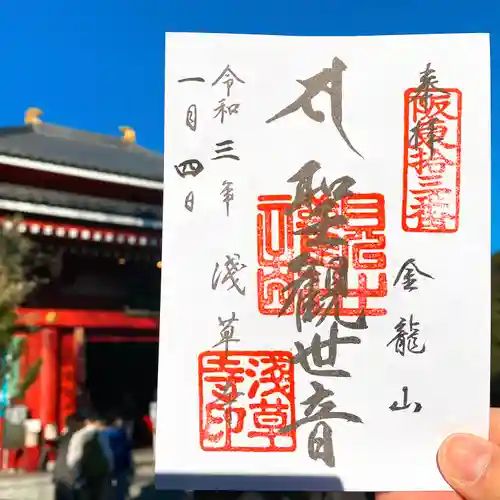 奉拝
坂東拾三番
金龍山
聖観世音
浅草寺印
令和三年
淺草寺
一月四日